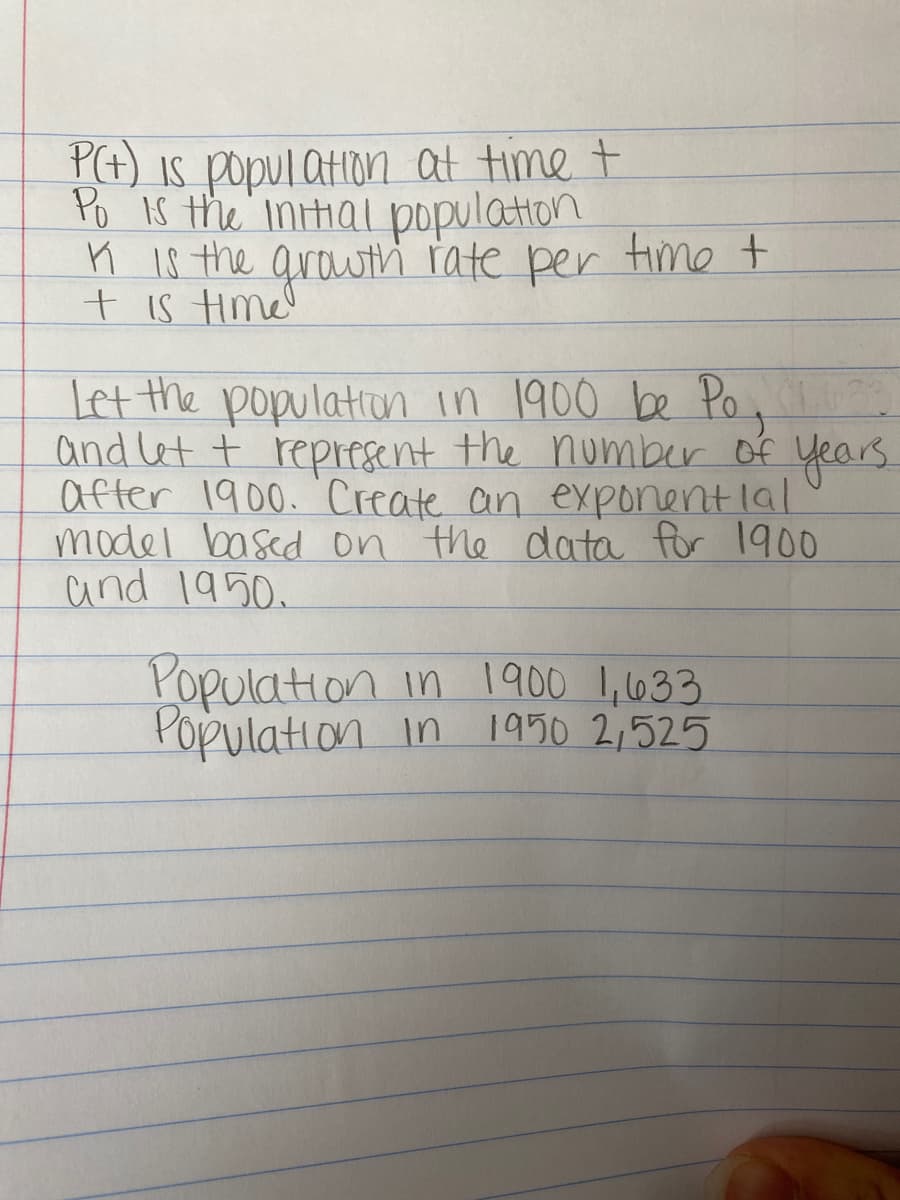 P(t) is population at time t
Po is the initial population
K is the growth rate per time t
t is time
Let the population in 1900 be Po,
and let t represent the number of years
after 1900. Create an exponential
model based on the data for 1900
and 1950.
Population in 1900 1,633
Population in 1950 2,525